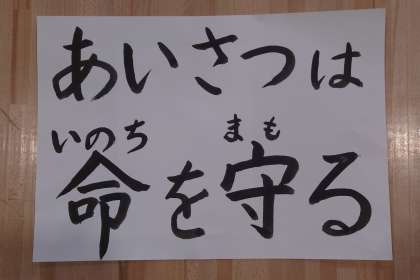 あいさつは
いのち まも
命を守る